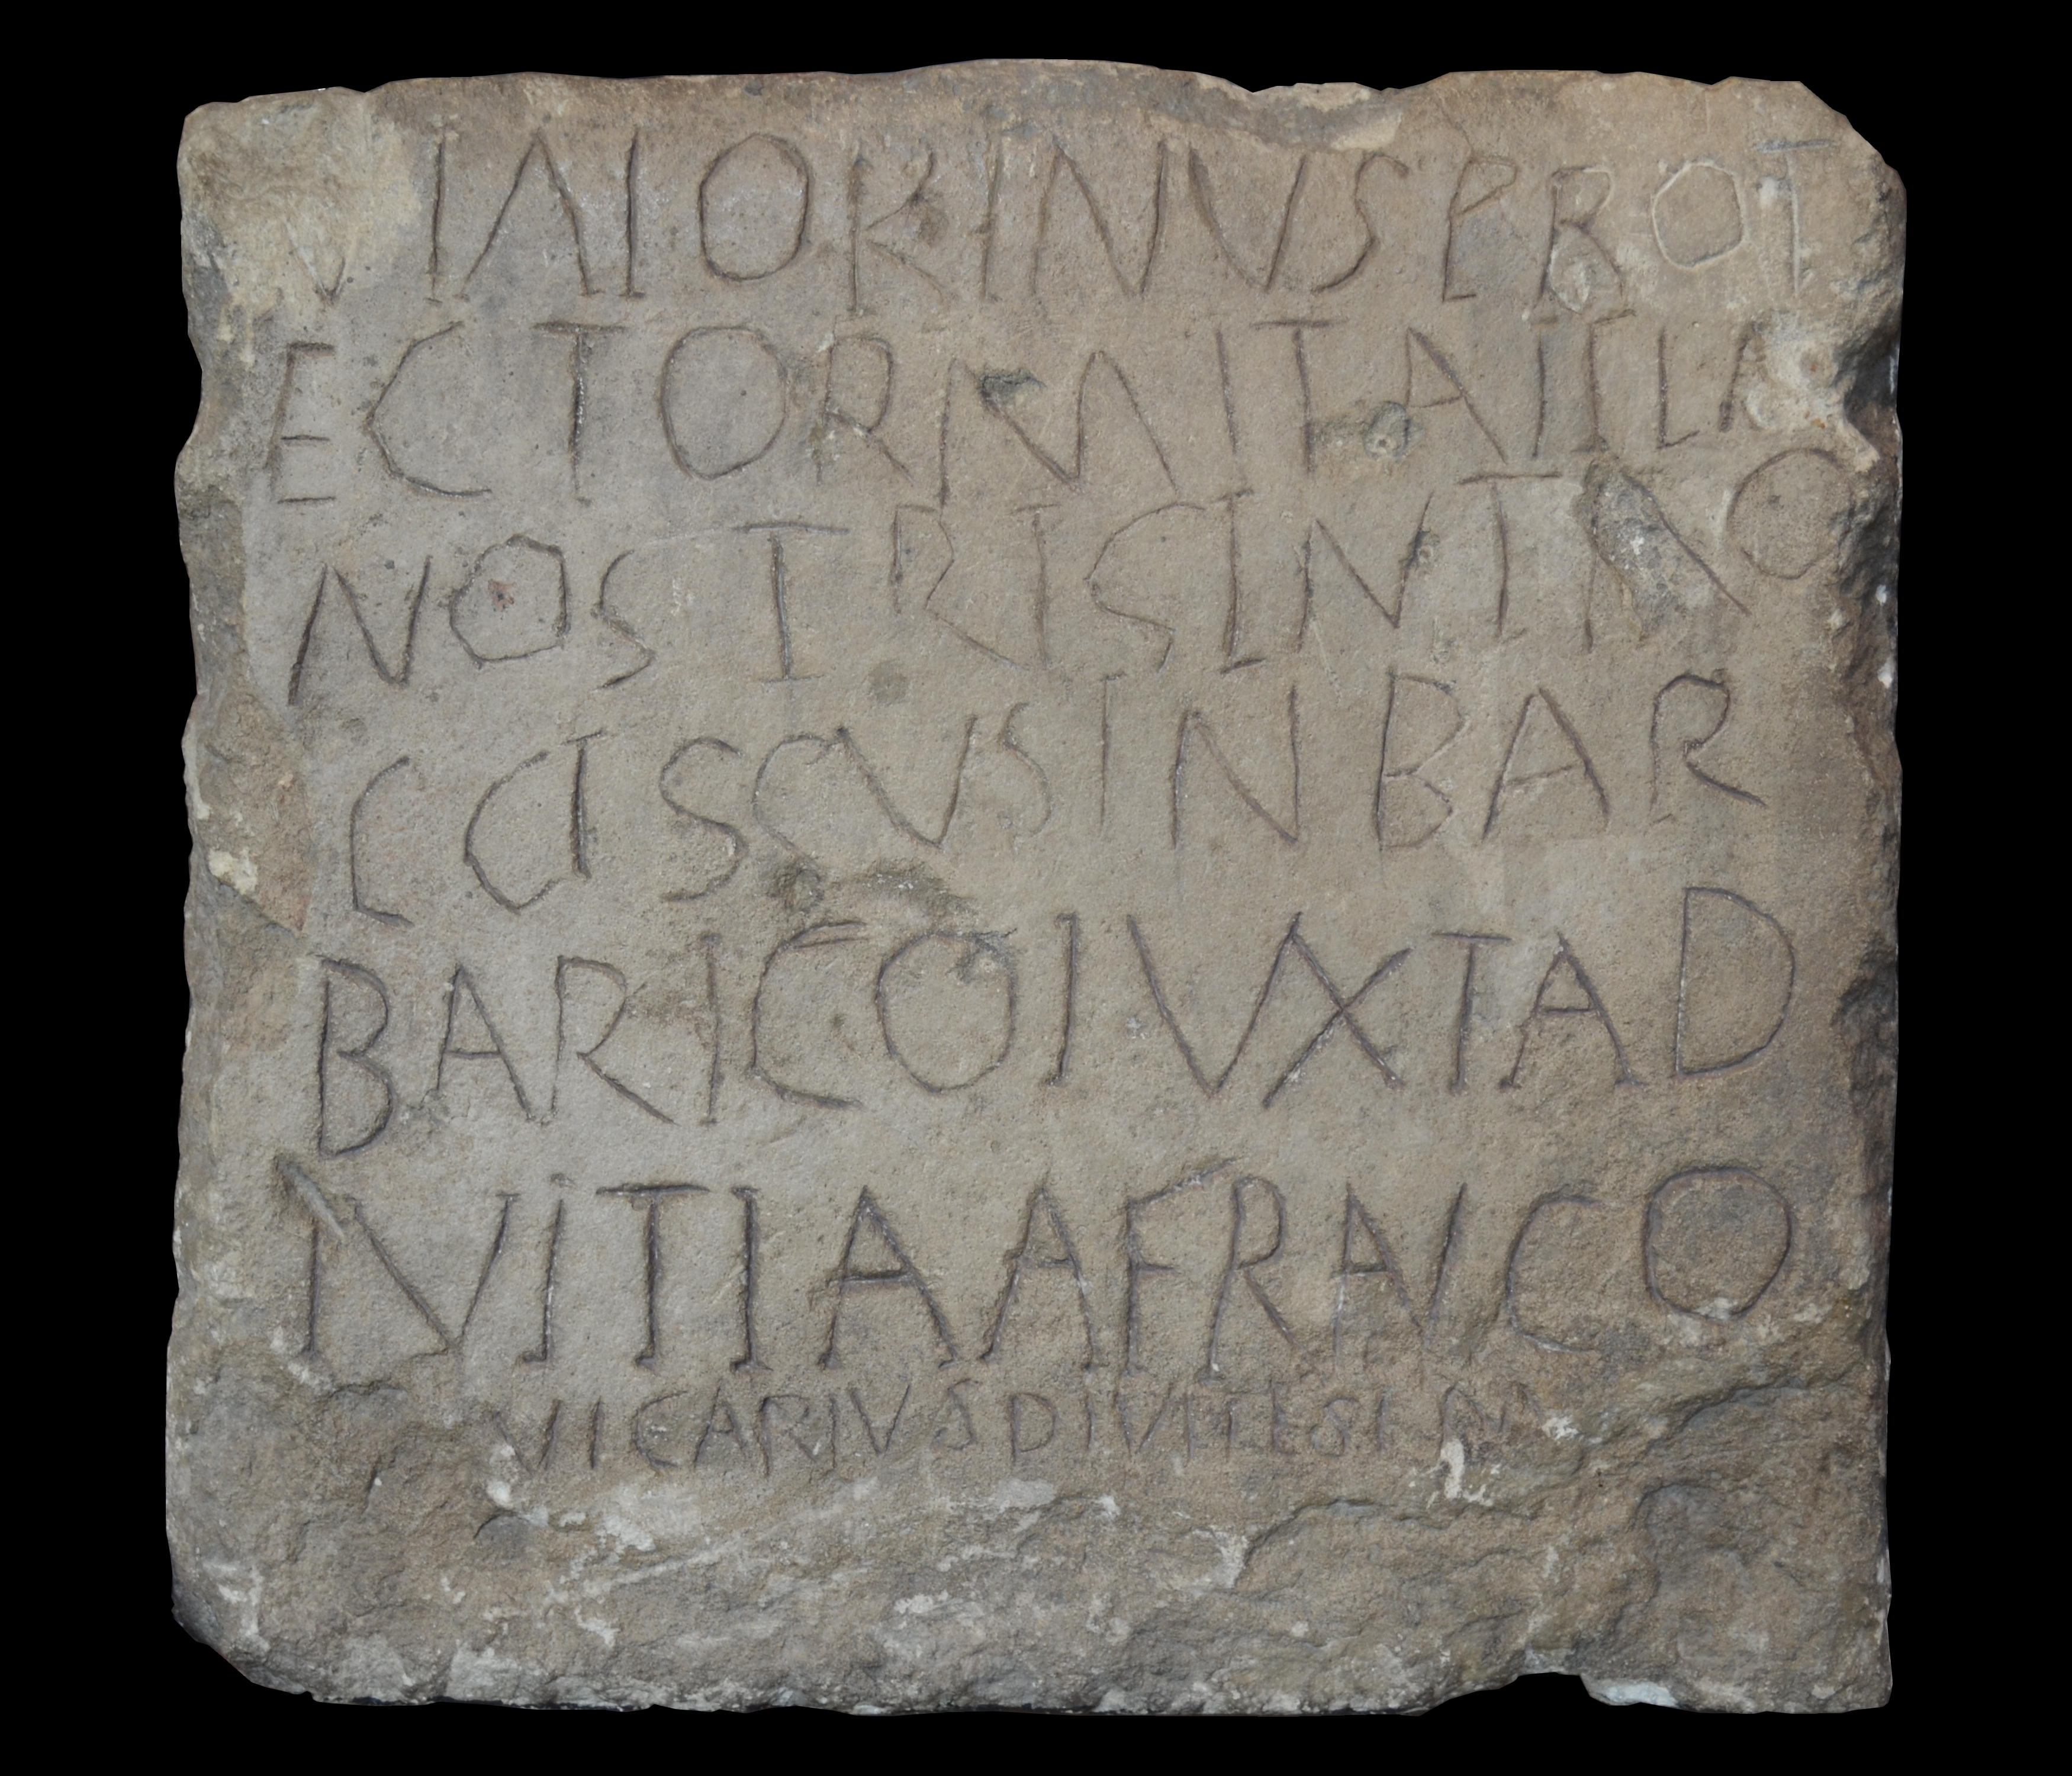 MAIORINUSPROT
ECTORMITATELA
NOSTRISINTRO
CCISCUSINBAR
BARICOIUXTAD
IVITIAAFRAICO
VICARIUSDIVITESIN